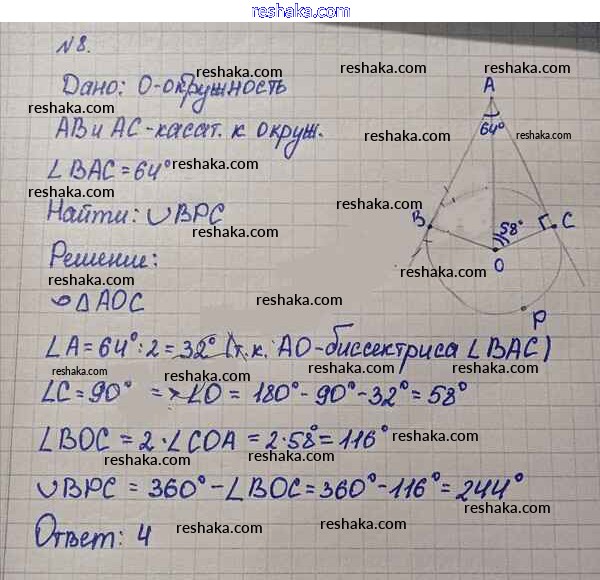 www.reshaka.com
N8.
reshaka.com
reshaka.com
Дано: О-окружность
reshaka.com
A
АВ и АС-касат. к окруж.
64°
reshaka.com
reshaka.com
∠BAC=64°
reshaka.com
reshaka.com
Найти: ∪BPC
reshaka.com
B
58°
C
Решение:
reshaka.com
O
△AOC
reshaka.com
reshaka.com
P
∠A=64°:2=32° (т.к. АО-биссектриса ∠BAC)
reshaka.com
reshaka.com
∠C=90° => ∠O=180°-90°-32°=58°
reshaka.com
∠BOC=2·∠COA=2·58°=116°
reshaka.com
reshaka.com
∪BPC=360°-∠BOC=360°-116°=244°
reshaka.com
reshaka.com
Ответ: 4
reshaka.com
reshaka.com
www.reshaka.com